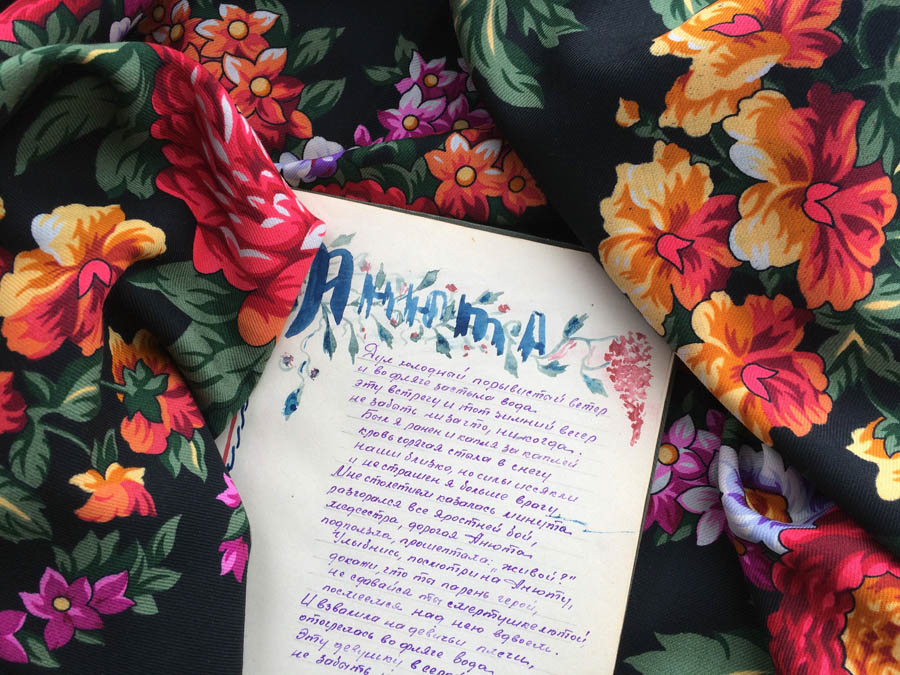 Анюта
Дул холодный порывистый ветер
и во фляге застыла вода
эту встречу и тот зимний вечер
не забыть ни за что, никогда.
Был я ранен и капля за каплей
кровь горячая стыла в снегу
наши близко, но силы иссякли
и не страшен я больше врагу
Мне столетием казалась минута
разгорался все яростней бой,
медсестра, дорогая Анюта
подползла, прошептала: "живой?"
Улыбнись, посмотри на Анюту,
докажи, что ты парень герой,
не сдавайся ты смертушке лютой,
посмеемся над нею вдвоем.
И взвалила на девичьи плечи,
отогрелась во фляге вода
Эту девушку в
не забыть